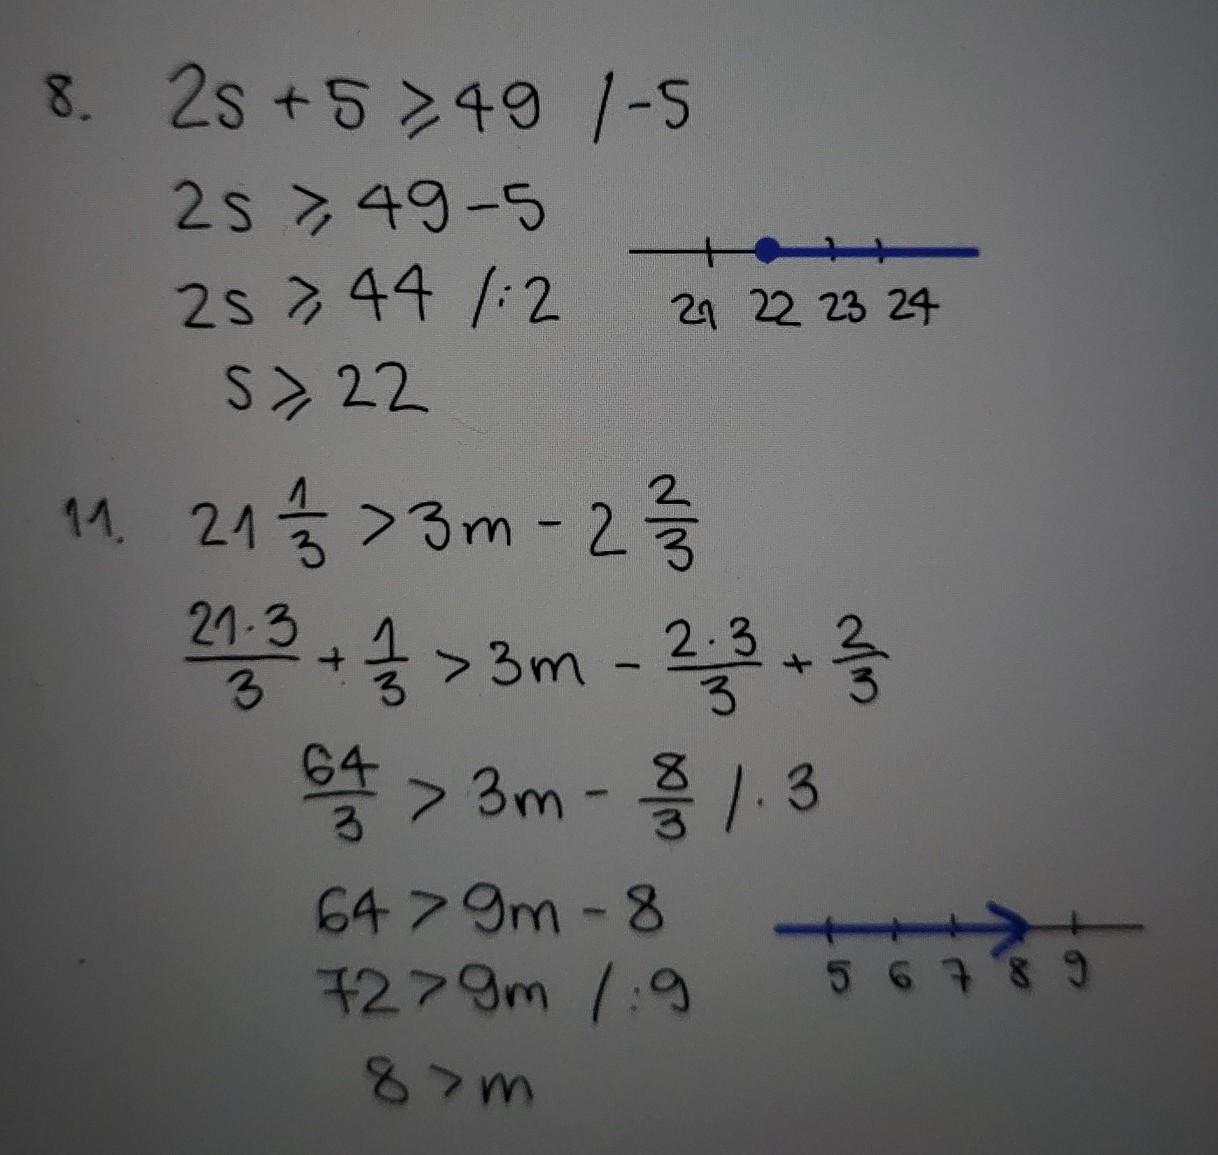 8. 2s + 5 ⩾ 49 /-5
2s ⩾ 49-5
2s ⩾ 44 /:2
s ⩾ 22
21 22 23 24
11. 21 1/3 > 3m - 2 2/3
21·3/3 + 1/3 > 3m - 2·3/3 + 2/3
64/3 > 3m - 8/3 /·3
64 > 9m - 8
72 > 9m /:9
8 > m
5 6 7 8 9